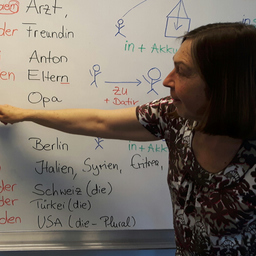 dem Arzt,
der Freundin
Anton
en Eltern
Opa
in + Akk
zu
+ Dativ
Berlin
in + Akk
Italien, Syrien,
der Schweiz (die)
der Türkei (die)
den USA (die - Plural)